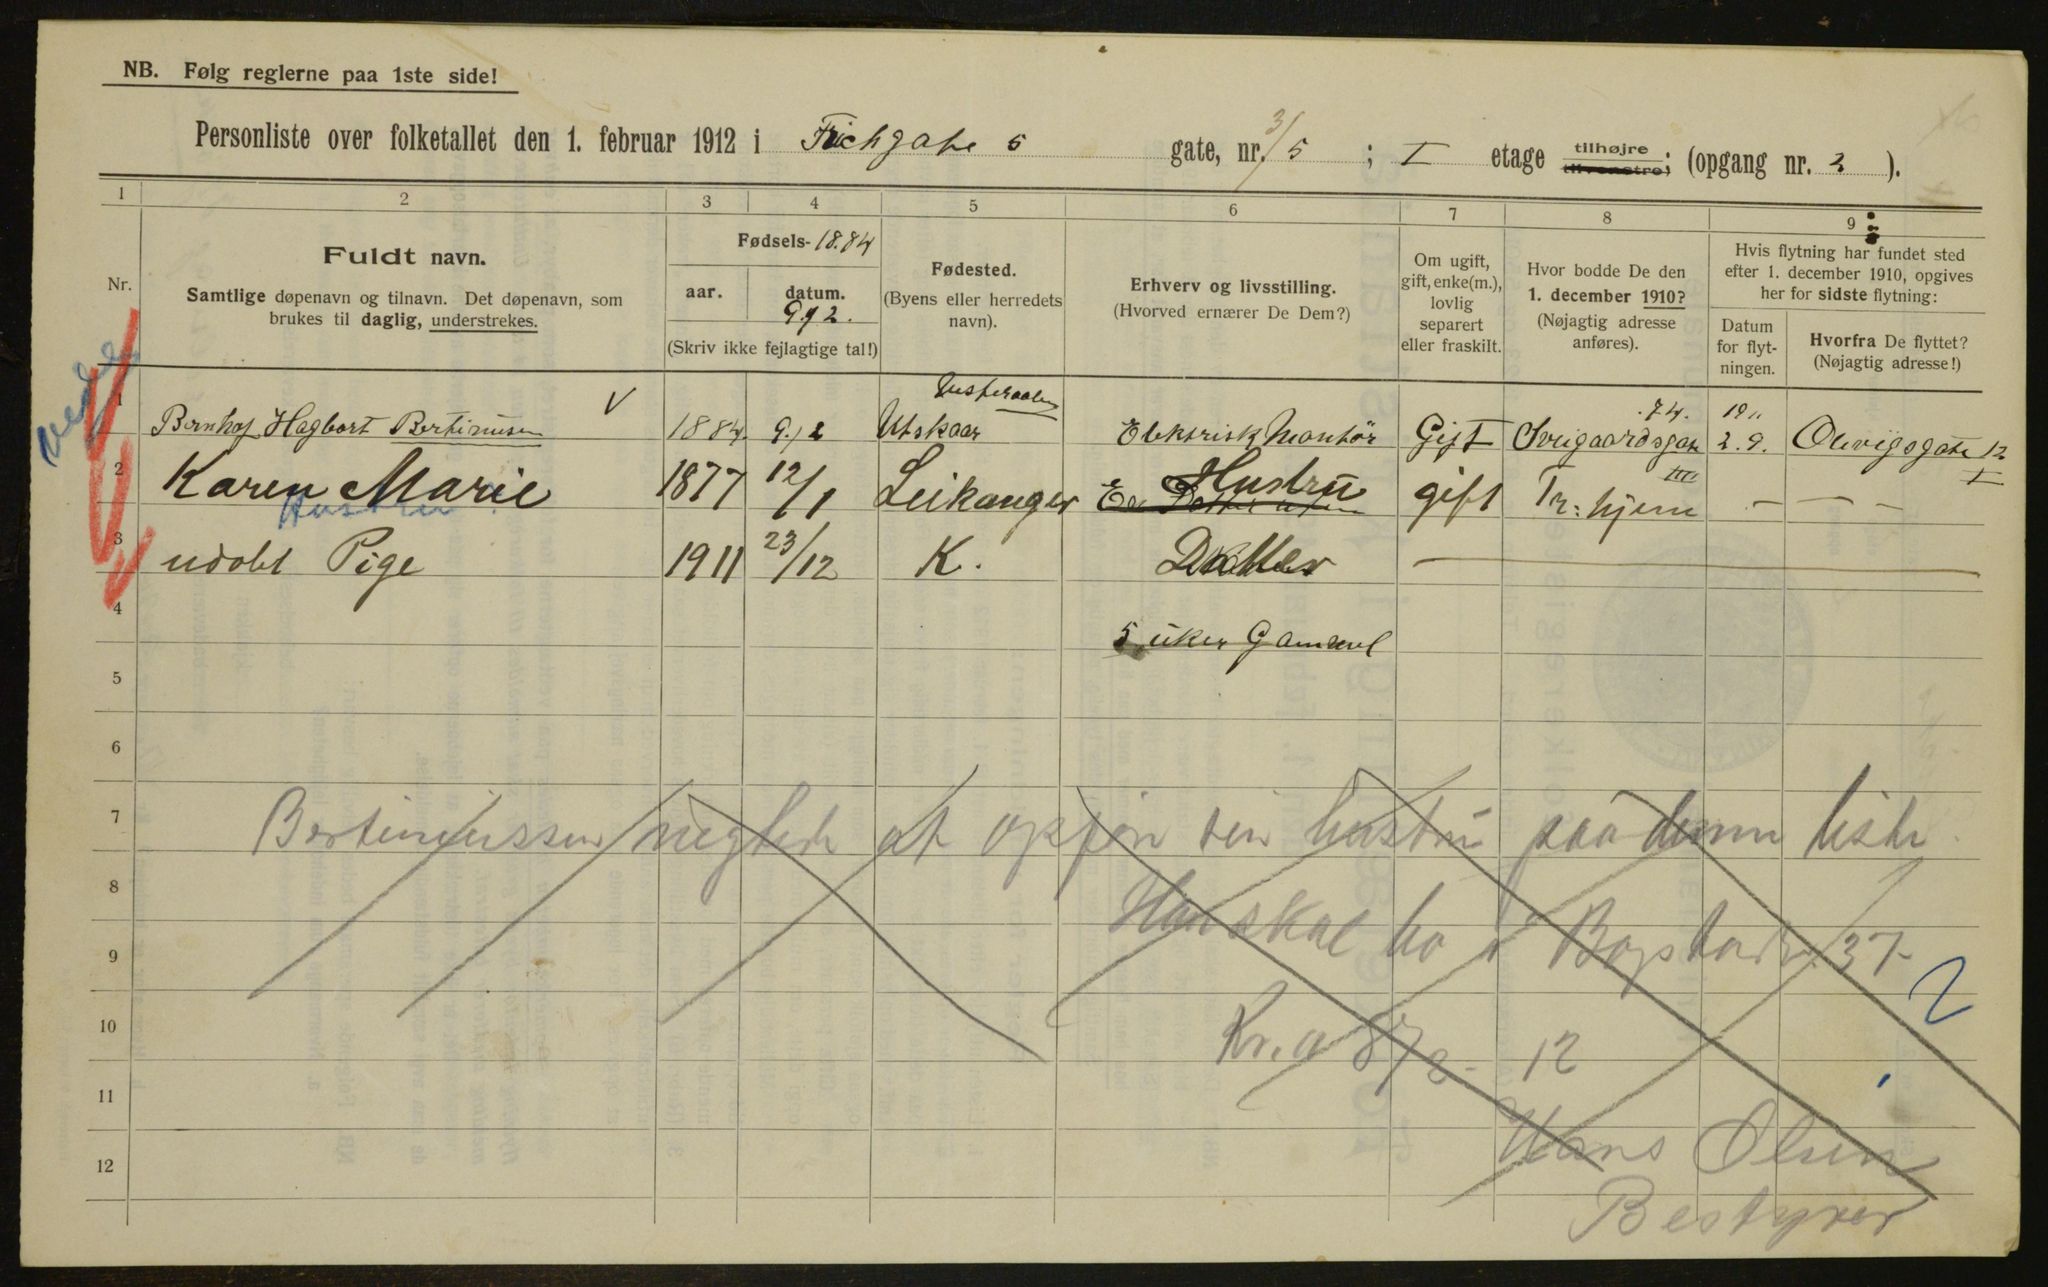 NB. Følg reglerne paa 1ste side!
Personliste over folketallet den 1. februar 1912 i Frichgate 5 gate, nr. 3/5 ; I etage tilhøjre tilvenstre; (opgang nr. 2 ).
1 2 3 4 5 6 7 8 9
Nr.
Fuldt navn.
Samtlige døpenavn og tilnavn. Det døpenavn, som
brukes til daglig, understrekes.
Fødsels- 18.84
aar. datum.
9.12.
(Skriv ikke fejlagtige tal!)
Fødested.
(Byens eller herredets
navn).
Erhverv og livsstilling.
(Hvorved ernærer De Dem?)
Om ugift,
gift, enke(m.),
lovlig
separert
eller fraskilt.
Hvor bodde De den
1. december 1910?
(Nøjagtig adresse
anføres).
Hvis flytning har fundet sted
efter 1. december 1910, opgives
her for sidste flytning:
Datum
for flyt-
ningen.
Hvorfra De flyttet?
(Nøjagtig adresse!)
1 Hagbart Bertinusen V 1884. 9./2 Utskaar Elektrisk Montør Gift 74. 1911 2.9. 12 I
2 Karen Marie 1877 12/1 Leikanger Hustru gift III Tr: hjem — —
Hustru
3 udøbt Pige 1911 23/12 K. Datter
4 5 uker Gammel
5
6
7 Bertinussen neglede at opføre sin hustru paa denne liste.
8 Han skal bo i
9 37-
10 Kr.a 8/2 - 12
2
11 Hans Olsen
12 Bestyrer